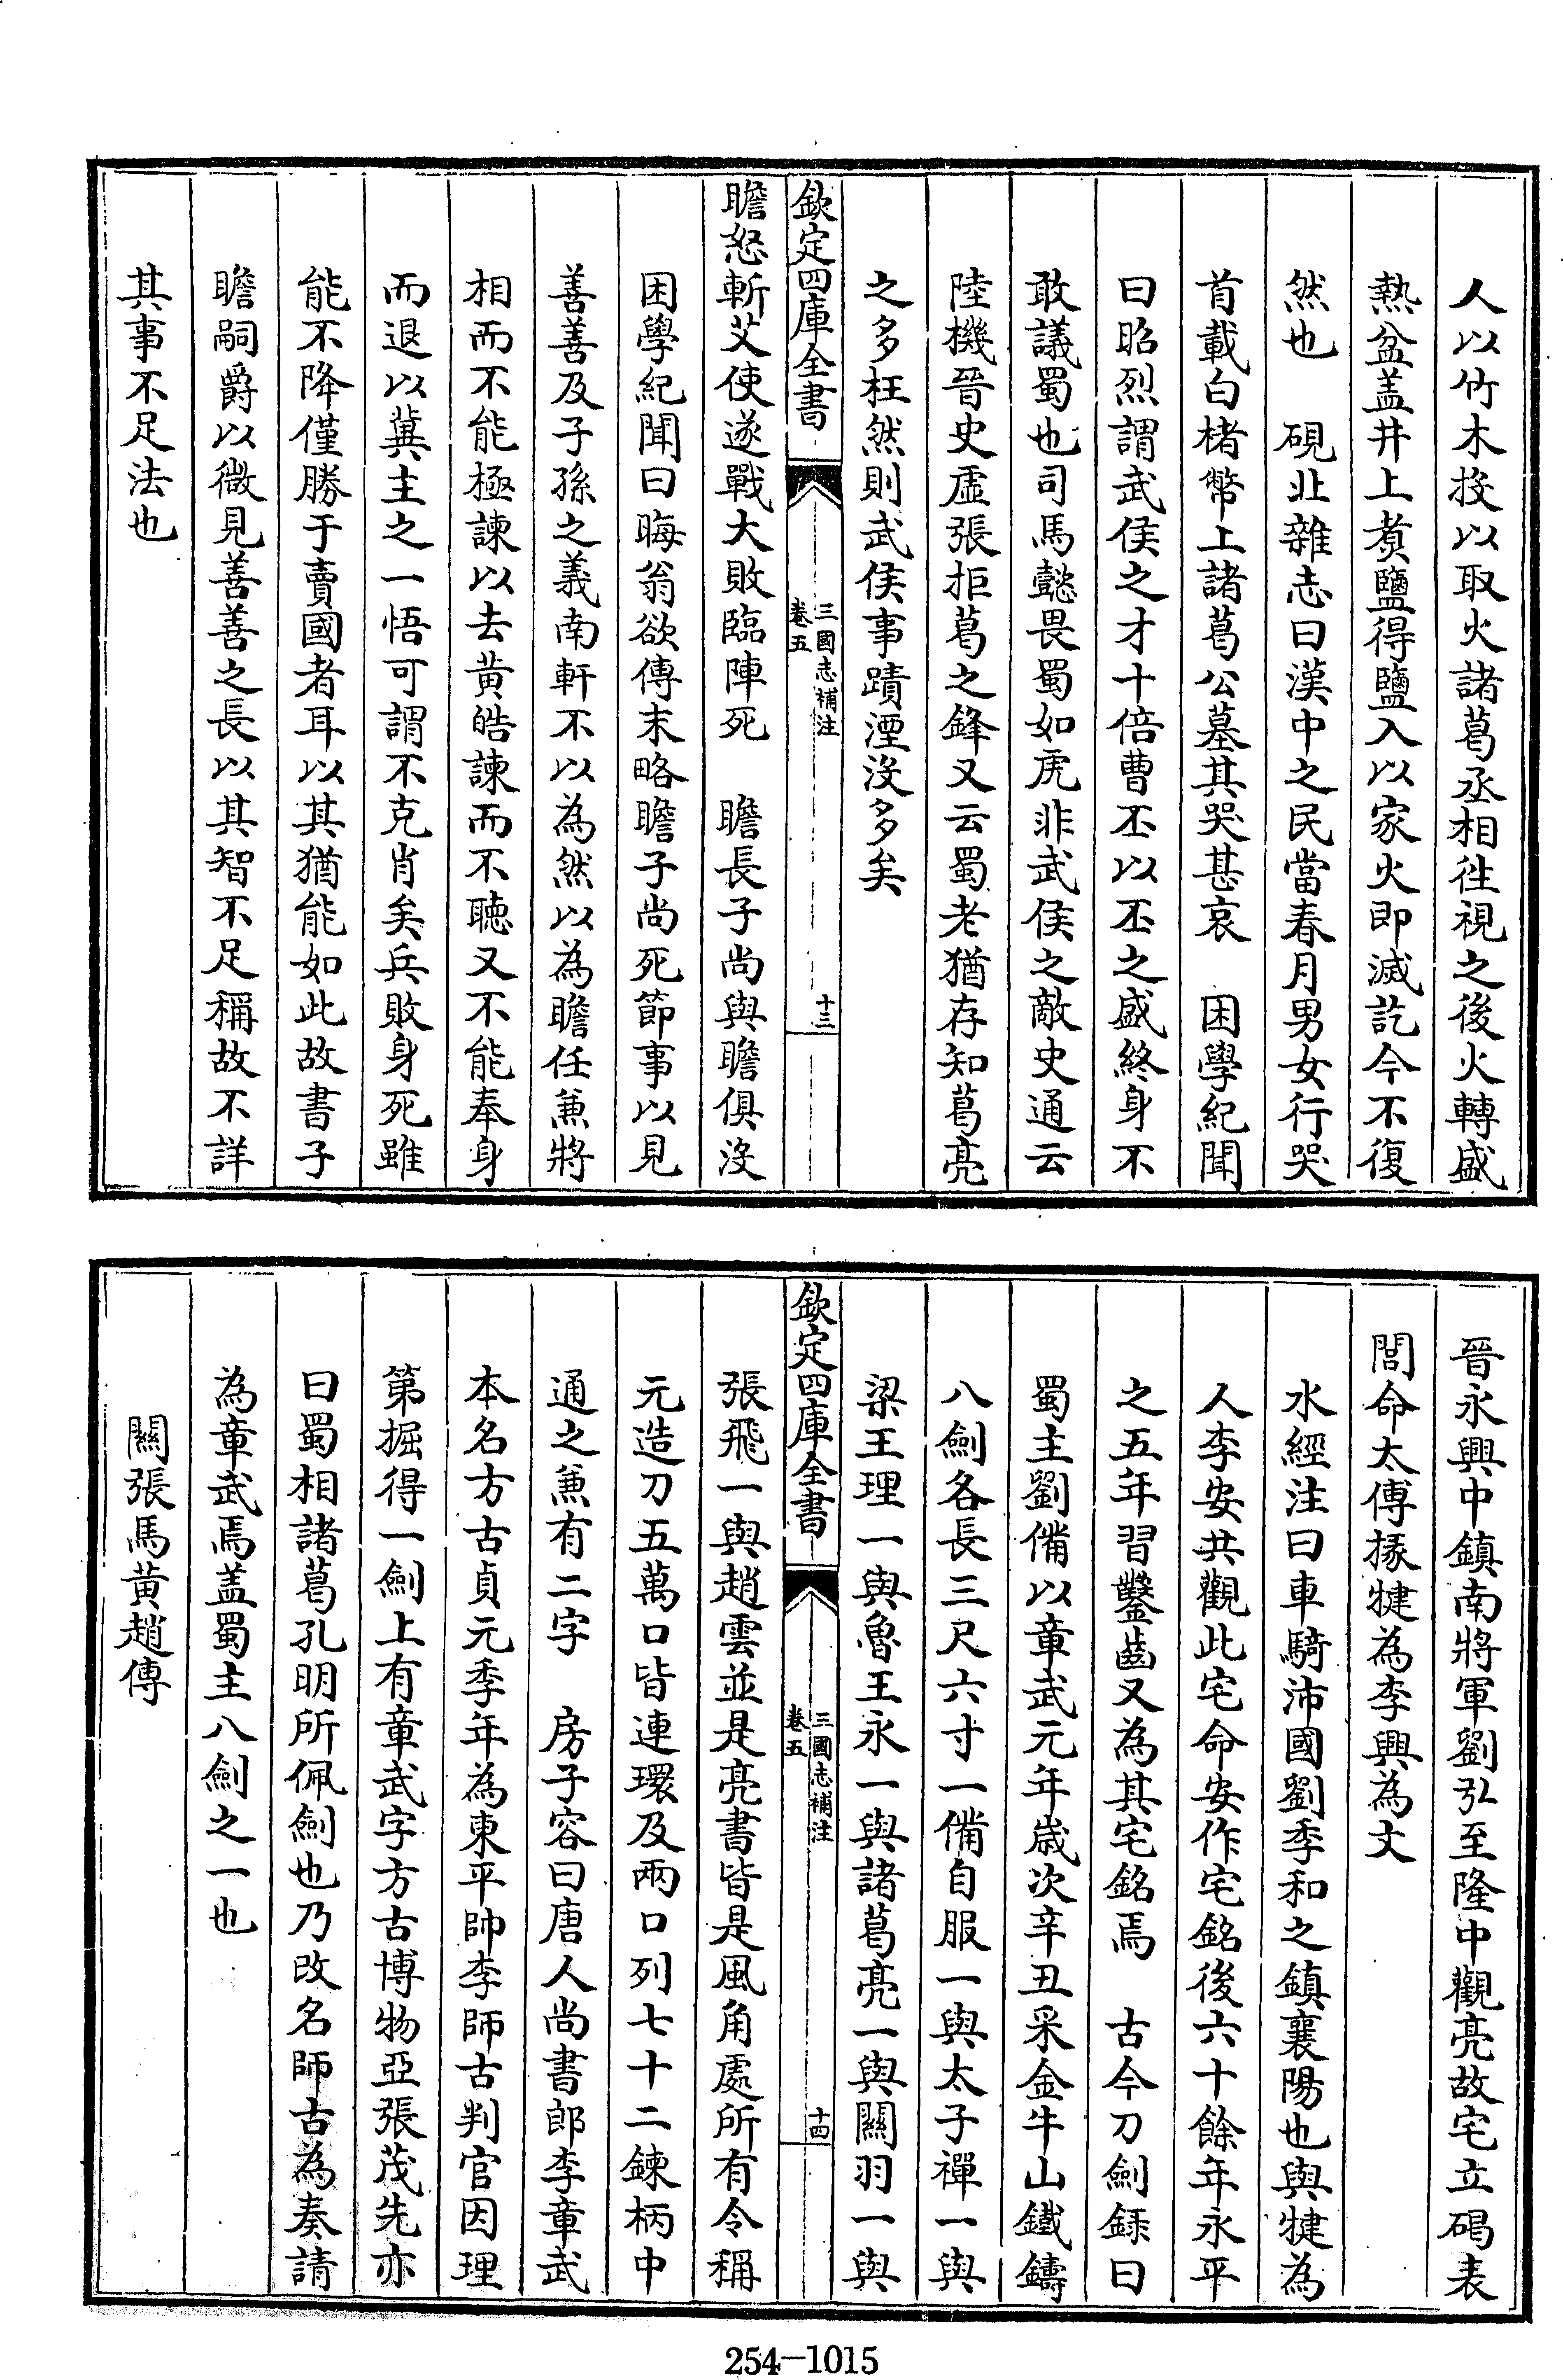 人以竹木投以取火諸葛丞相徃視之後火轉盛
熱盆盖井上煑鹽得鹽入以家火即滅訖今不復
然也　硯北雜志曰漢中之民當春月男女行哭
首載白楮幣上諸葛公墓其哭甚哀　困學紀聞
曰昭烈謂武侯之才十倍曹丕以丕之盛終身不
敢議蜀也司馬懿畏蜀如虎非武侯之敵史通云
陸機晉史虛張拒葛之鋒又云蜀老猶存知葛亮
之多枉然則武侯事蹟湮沒多矣
欽定四庫全書
三國志補注
卷五
十三
瞻怒斬艾使遂戰大敗臨陣死　瞻長子尚與瞻俱沒
困學紀聞曰晦翁欲傳末略瞻子尚死節事以見
善善及子孫之義南軒不以為然以為瞻任兼將
相而不能極諫以去黄皓諫而不聴又不能奉身
而退以冀主之一悟可謂不克肖矣兵敗身死雖
能不降僅勝于賣國者耳以其猶能如此故書子
瞻嗣爵以微見善善之長以其智不足稱故不詳
其事不足法也
晉永興中鎮南將軍劉弘至隆中觀亮故宅立碣表
閭命太傅掾犍為李興為文
水經注曰車騎沛國劉季和之鎮襄陽也與犍為
人李安共觀此宅命安作宅銘後六十餘年永平
之五年習鑿齒又為其宅銘焉　古今刀劍録曰
蜀主劉備以章武元年歳次辛丑采金牛山鐵鑄
八劍各長三尺六寸一備自服一與太子禪一與
梁王理一與魯王永一與諸葛亮一與關羽一與
欽定四庫全書
三國志補注
卷五
十四
張飛一與趙雲並是亮書皆是風角處所有令稱
元造刀五萬口皆連環及兩口列七十二鍊柄中
通之兼有二字　房子容曰唐人尚書郎李章武
本名方古貞元季年為東平帥李師古判官因理
第掘得一劍上有章武字方古博物亞張茂先亦
曰蜀相諸葛孔明所佩劍也乃改名師古為奏請
為章武焉盖蜀主八劍之一也
關張馬黄趙傳
254-1015